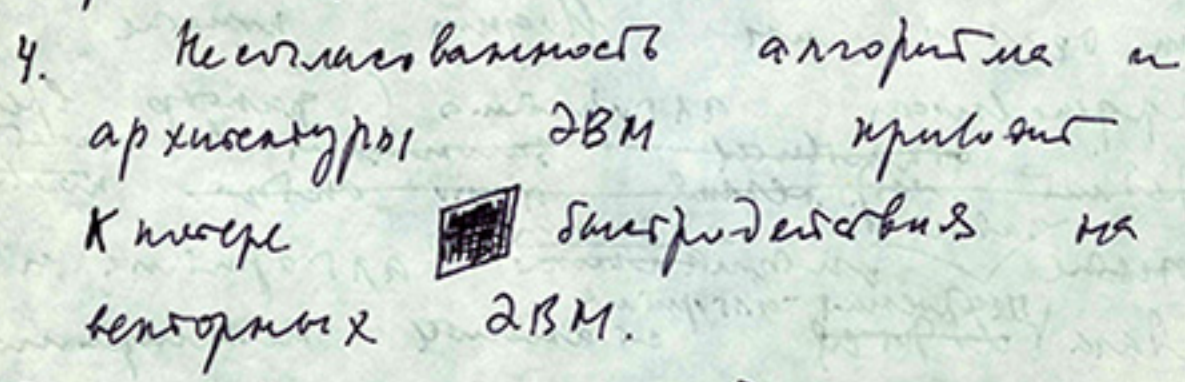 4. Несогласованность алгоритма и
архитектуры ЭВМ приводит
к потере быстродействия на
векторных ЭВМ.